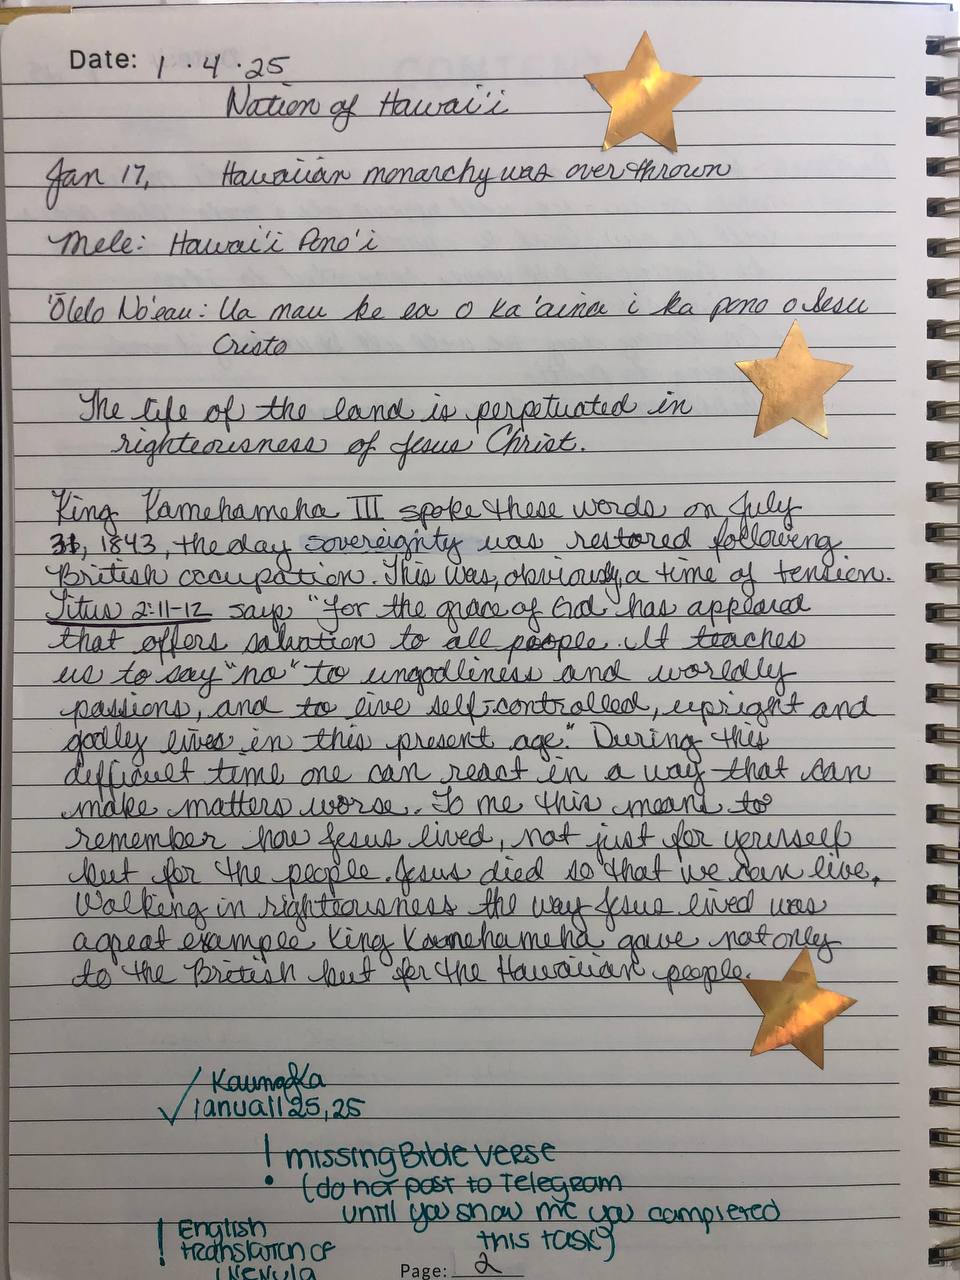 Date: 1 · 4 · 25
Nation of Hawai'i
Jan 17, Hawaiian monarchy was overthrown
Mele: Hawai'i Pono'i
'Ōlelo No'eau: Ua mau ke ea o ka 'aina i ka pono o Iesu
Cristo
The life of the land is perpetuated in
righteousness of Jesus Christ.
King Kamehameha III spoke these words on July
31, 1843, the day sovereignty was restored following
British occupation. This was, obviously, a time of tension.
Titus 2:11-12 says "For the grace of God has appeared
that offers salvation to all people. It teaches
us to say "no" to ungodliness and worldly
passions, and to live self-controlled, upright and
godly lives in this present age." During this
difficult time one can react in a way that can
make matters worse. To me this means to
remember how Jesus lived, not just for yourself
but for the people. Jesus died so that we can live.
Walking in righteousness the way Jesus lived was
a great example King Kamehameha gave not only
to the British but for the Hawaiian people.
✓ Kaumaka
Ianuali 25, 25
! missing Bible verse
(do not post to Telegram
until you show me you completed
this task)
! English
translation of
Page: 2